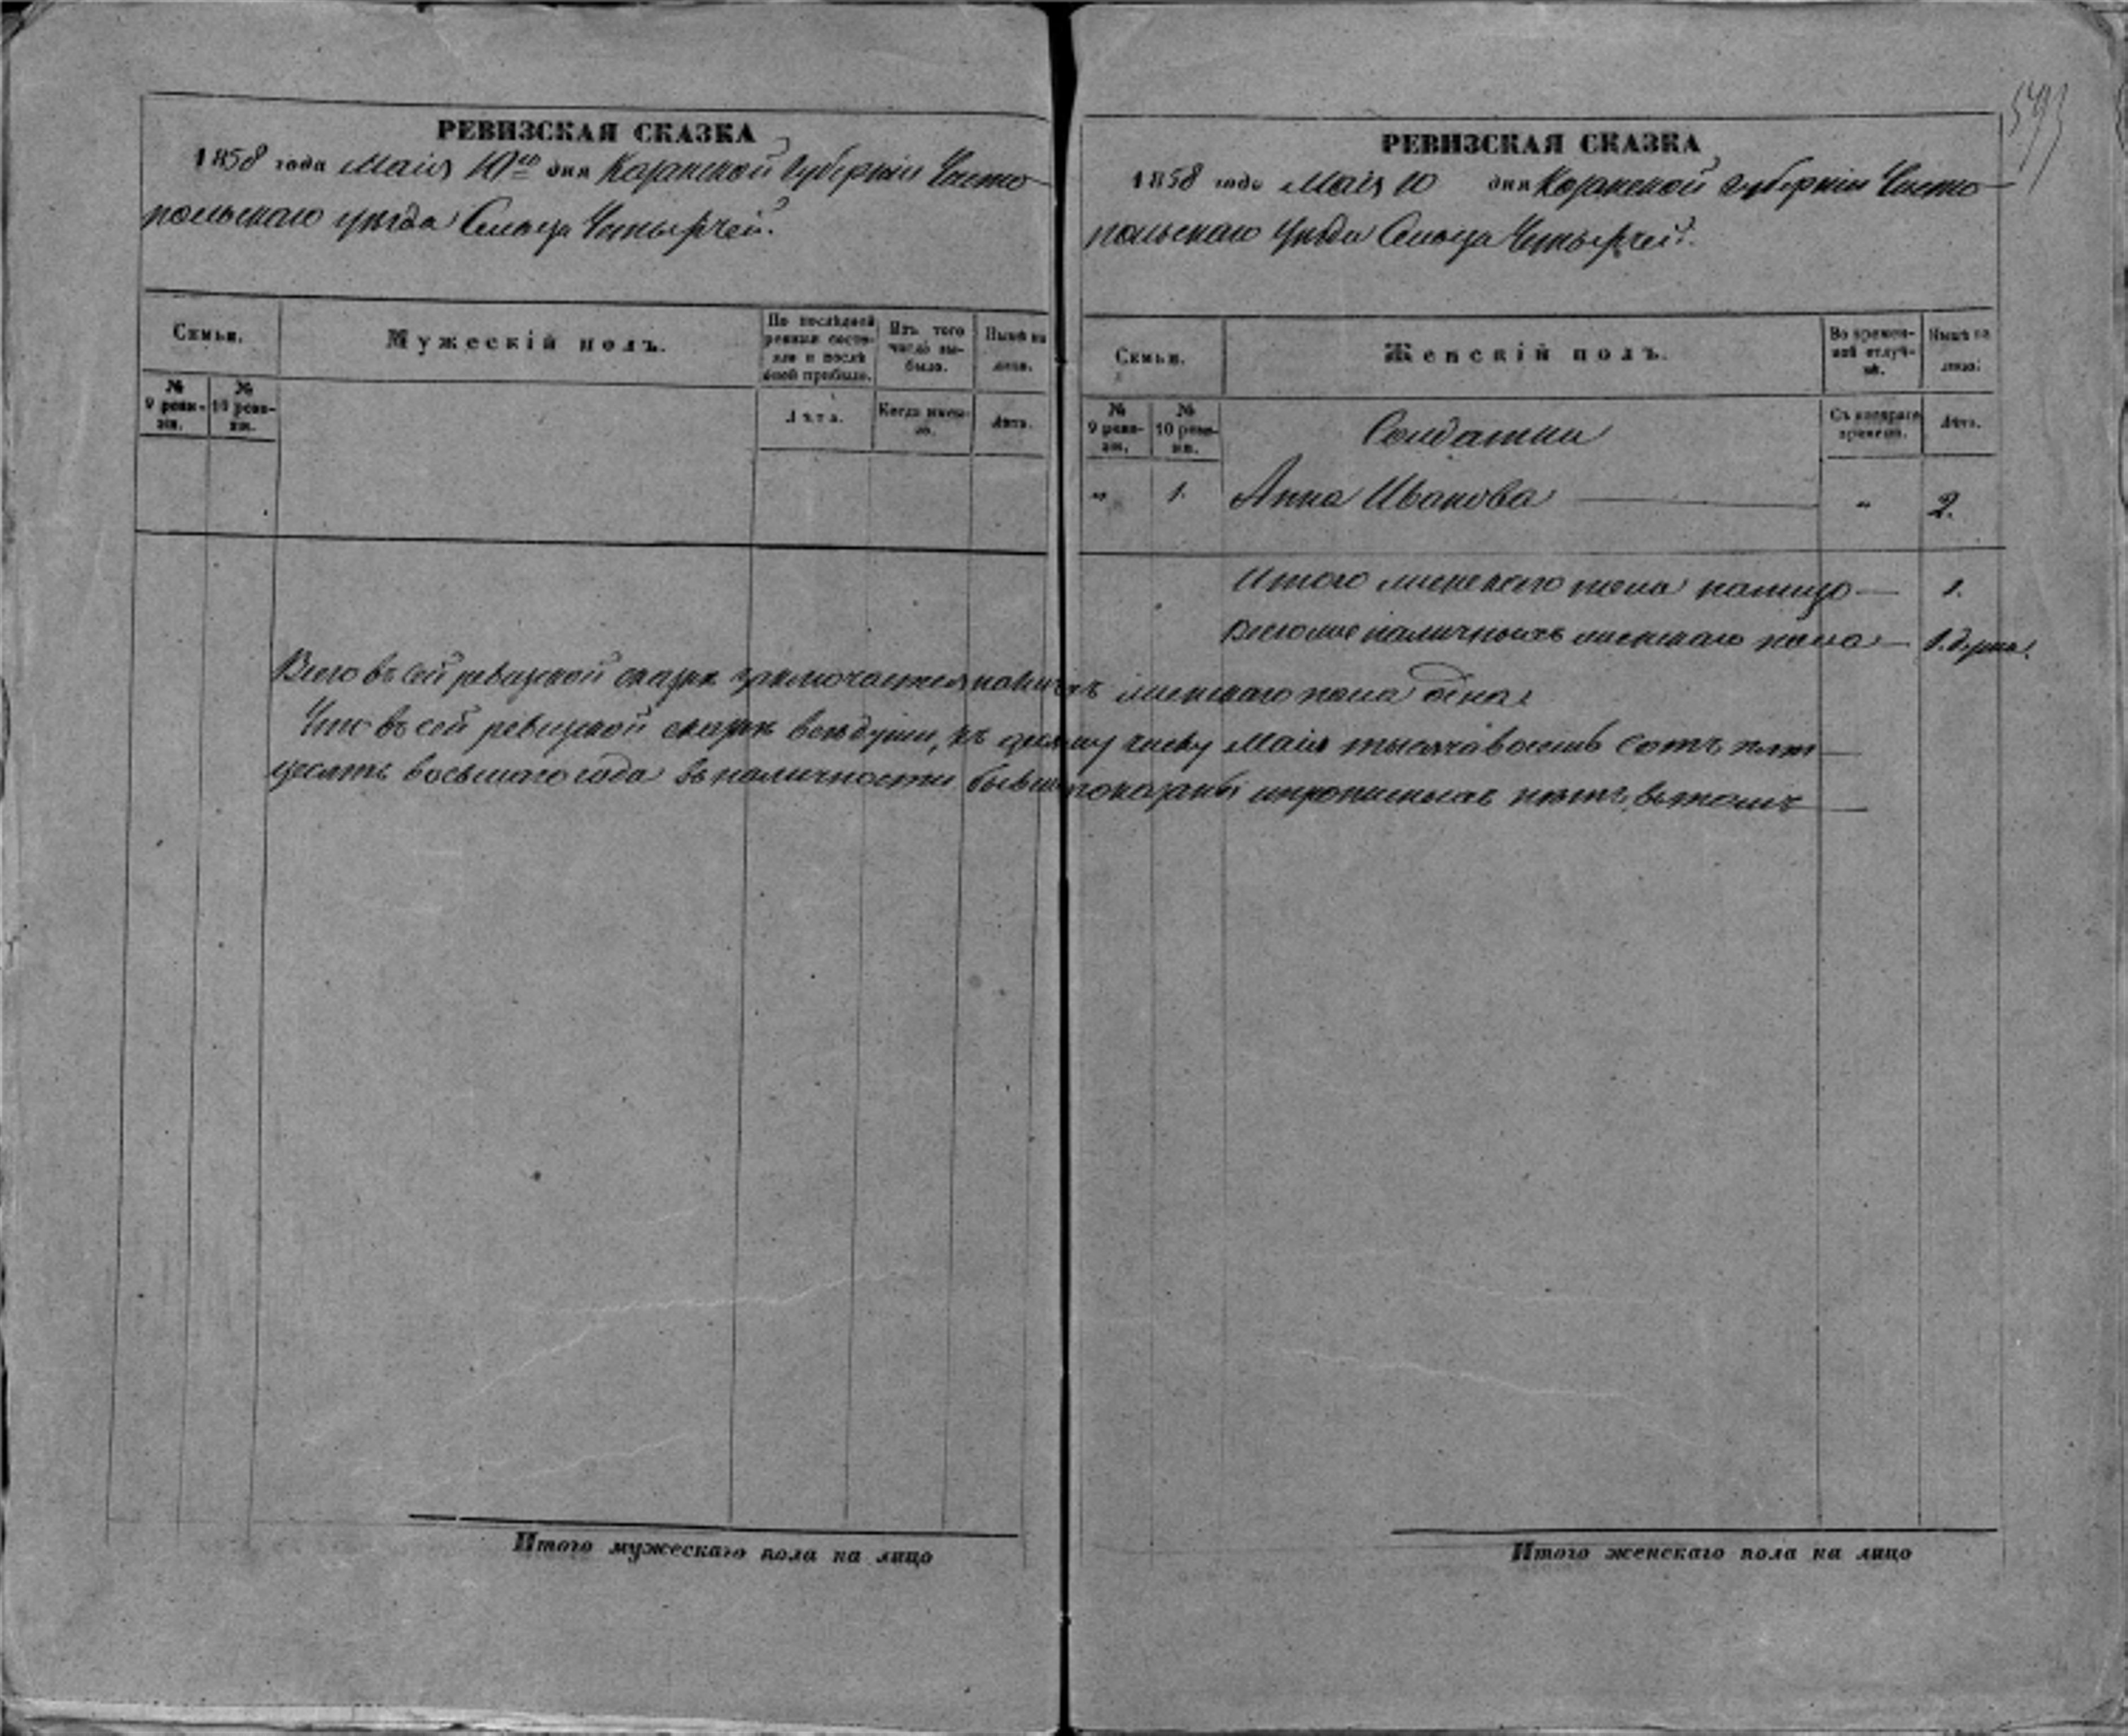 РЕВИЗСКАЯ СКАЗКА
1858 года Маія 10го дня Казанской Губерніи Чисто
польскаго уѣзда Сельца Четырчей.
Семьи.
Мужескій полъ.
По послѣдней ревизіи состояло и послѣ оной прибыло.
Изъ того числа выбыло.
Нынѣ на лицо.
№ 9 ревизіи.
№ 10 ревизіи.
Лѣта.
Когда именно.
Лѣта.
593
РЕВИЗСКАЯ СКАЗКА
1858 года Маія 10 дня Казанской Губерніи Чисто
польскаго Уѣзда Сельца Четырчей.
Семьи.
Женскій полъ.
Во временной отлучкѣ.
Нынѣ на лицо.
№ 9 ревизіи.
№ 10 ревизіи.
Солдатки
Съ котораго времени.
Лѣта.
„ 1. Анна Иванова — „ 2.
Итого женскаго пола налицо — 1.
Всего же наличныхъ женскаго пола — 1. душа.
Всего въ сей ревизской сказкѣ заключается наличныхъ женскаго пола одна.
Что въ сей ревизской сказкѣ всѣ души, къ числу Маія тысяча восемь сотъ пять
десятъ восьмаго года въ наличности бывшія показаны и прописныхъ нѣтъ, въ томъ
Итого мужескаго пола на лицо
Итого женскаго пола на лицо